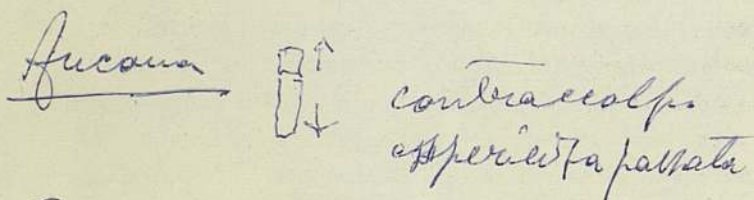 Ancona
contraccolpo
esperienza passata